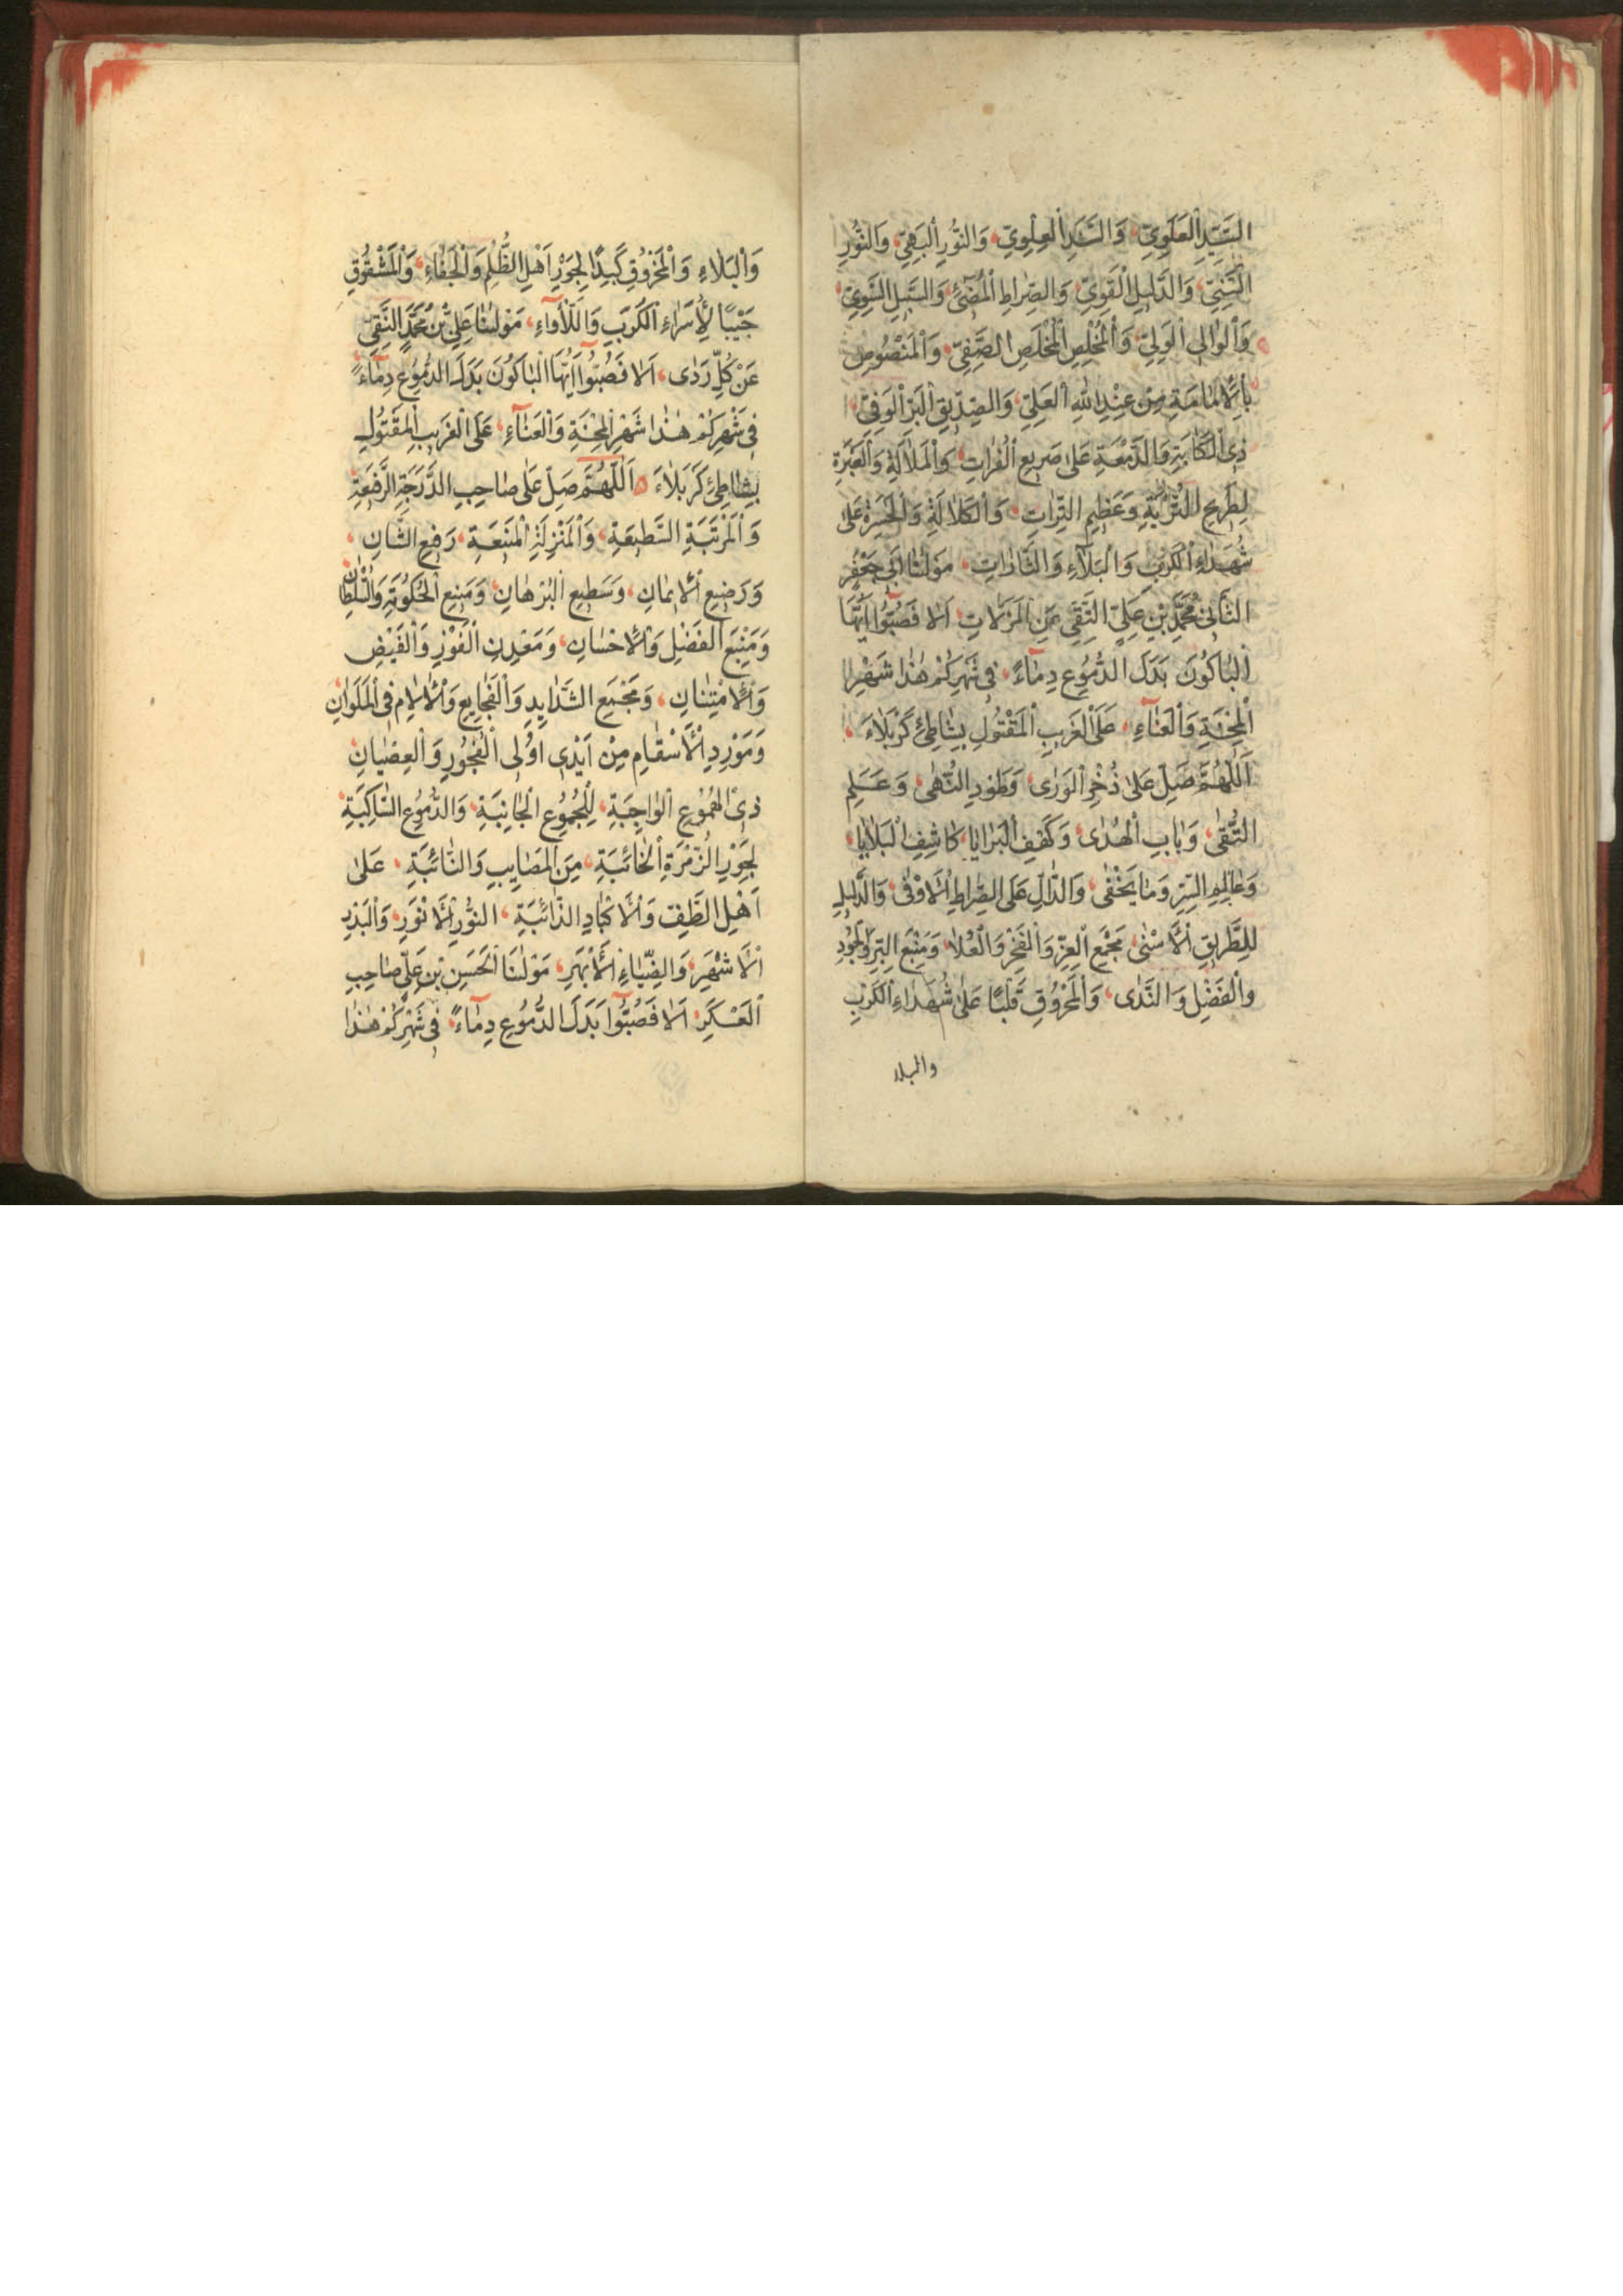 السَّيِّدِ الْعَلَوِيِّ، وَالسَّنَدِ الْعِلْوِيِّ، وَالنُّورِ الْبَهِيِّ، وَالنُّورِ
السَّنِيِّ، وَالدَّلِيلِ الْقَوِيِّ، وَالصِّرَاطِ الْمُضِيْءِ، وَالسَّبِيلِ السَّوِيِّ،
وَالْوَالِي الْوَلِيِّ، وَالْمُخْلِصِ الْمُخْلَصِ الصَّفِيِّ، وَالْمَنْصُوصِ
بِالْاِمَامَةِ مِنْ عِنْدِ اللهِ الْعَلِيِّ، وَالصِّدِّيقِ الْبَرِّ الْوَفِيِّ،
ذِي الْكَاٰبَةِ وَالدَّمْعَةِ عَلٰى صَرِيعِ الْفُرَاتِ، وَالْمَلَالَةِ وَالْعَبْرَةِ
لِطَرِيحِ التُّرْبَةِ وَعَظِيمِ التِّرَاتِ، وَالْكَلَالَةِ وَالْحَسْرَةِ عَلٰى
شُهَدَاءِ الْكَرْبِ وَالْبَلَآءِ وَالثَّارَاتِ، مَوْلٰنَا اَبِي جَعْفَرٍ
الثَّانِي مُحَمَّدِ بْنِ عَلِيٍّ التَّقِيِّ عَنِ الْمَزَلَّاتِ، اَلَا فَصُبُّوا اَيُّهَا
الْبَاكُونَ بَدَلَ الدُّمُوعِ دِمَآءً، فِي شَهْرِكُمْ هٰذَا شَهْرِ
الْمِحْنَةِ وَالْعَنَآءِ، عَلَى الْغَرِيبِ الْمَقْتُولِ بِشَاطِئِ كَرْبَلَاءَ،
اَللّٰهُمَّ صَلِّ عَلٰى ذُخْرِ الْوَرٰى، وَطَوْدِ النُّهٰى، وَعَلَمِ
التُّقٰى، وَبَابِ الْهُدٰى، وَكَهْفِ الْبَرَايَا، كَاشِفِ الْبَلَايَا،
وَعَالِمِ السِّرِّ وَمَا يَخْفٰى، وَالدَّالِّ عَلَى الصِّرَاطِ الْاَوْفٰى، وَالدَّلِيلِ
لِلطَّرِيقِ الْاَسْنٰى، مَجْمَعِ الْعِزِّ وَالْمَفْخَرِ وَالْعُلَا، وَمَنْبَعِ الْبِرِّ وَالْجُودِ
وَالْفَضْلِ وَالنَّدٰى، وَالْمَحْرُوقِ قَلْبًا عَلٰى شُهَدَاءِ الْكَرْبِ
والبلاء
وَالْبَلَاءِ وَالْمَحْرُوقِ كَبِدًا لِجَوْرِ اَهْلِ الظُّلْمِ وَالْجَفَاءِ، وَالْمَشْقُوقِ
جَيْبًا لِاُسَرَاءِ الْكَرْبِ وَاللَّاْوَاءِ، مَوْلٰنَا عَلِيِّ بْنِ مُحَمَّدٍ النَّقِيِّ
عَنْ كُلِّ رَدٰى، اَلَا فَصُبُّوا اَيُّهَا الْبَاكُونَ بَدَلَ الدُّمُوعِ دِمَآءً،
فِي شَهْرِكُمْ هٰذَا شَهْرِ الْمِحْنَةِ وَالْعَنَآءِ، عَلَى الْغَرِيبِ الْمَقْتُولِ
بِشَاطِئِ كَرْبَلَاءَ، اَللّٰهُمَّ صَلِّ عَلٰى صَاحِبِ الدَّرَجَةِ الرَّفِيعَةِ،
وَالْمَرْتَبَةِ السَّطِيعَةِ، وَالْمَنْزِلَةِ الْمَنِيعَةِ، رَفِيعِ الشَّانِ،
وَرَضِيعِ الْاِيمَانِ، وَسَطِيعِ الْبُرْهَانِ، وَمَنِيعِ الْحُكُومَةِ وَالسُّلْطَانِ
وَمَنْبَعِ الْفَضْلِ وَالْاِحْسَانِ، وَمَعْدِنِ الْفَوْزِ وَالْفَيْضِ
وَالْاِمْتِنَانِ، وَمَجْمَعِ الشَّدَايِدِ وَالْفَجَايِعِ وَالْاٰلَامِ فِي الْمَلَوَانِ،
وَمَوْرِدِ الْاَسْقَامِ مِنْ اَيْدِي اُولِي الْفُجُورِ وَالْعِصْيَانِ
ذِي الْهُمُوعِ الْوَاجِبَةِ، لِلْجُمُوعِ الْجَانِبَةِ، وَالدُّمُوعِ السَّاكِبَةِ،
لِجَوْرِ الزُّمْرَةِ الْخَائِبَةِ، مِنَ الْمَصَايِبِ وَالنَّائِبَةِ، عَلٰى
اَهْلِ الطَّفِّ وَالْاَكْبَادِ الذَّائِبَةِ، النُّورِ الْاَنْوَرِ، وَالْبَدْرِ
الْاَشْهَرِ، وَالضِّيَاءِ الْاَبْهَرِ، مَوْلٰنَا الْحَسَنِ بْنِ عَلِيٍّ صَاحِبِ
الْعَسْكَرِ، اَلَا فَصُبُّوا بَدَلَ الدُّمُوعِ دِمَآءً، فِي شَهْرِكُمْ هٰذَا